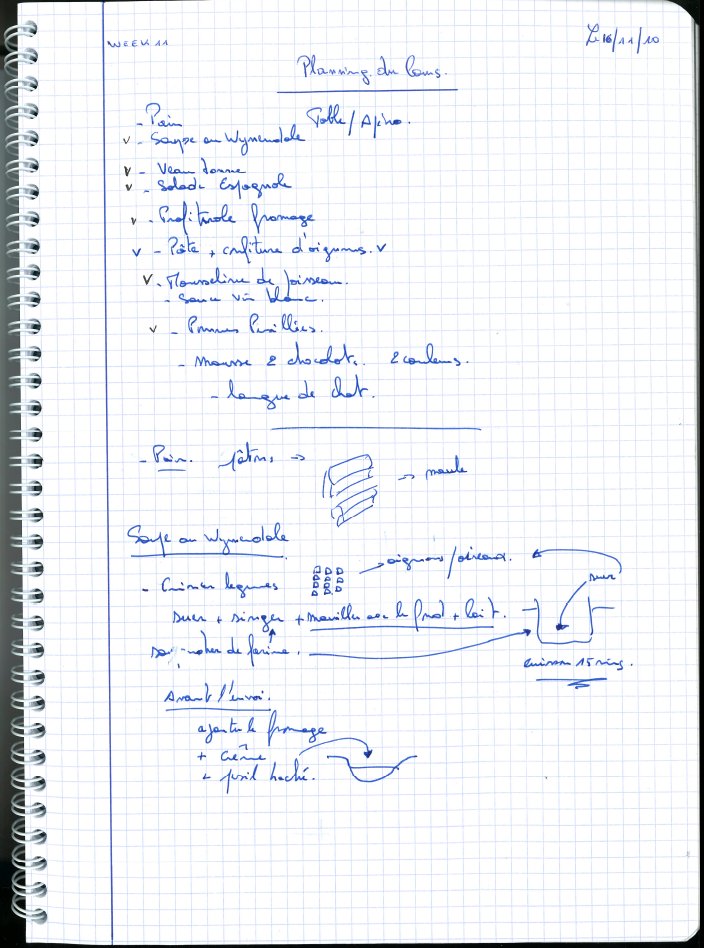 WEEK 11
Le 16/11/10
Planning du Cours.
- Pain
Table / Apéro.
v - Soupe au Wynendale
v - Veau tonne
v - Salade Espagnole
v - Profitrole fromage
v - Pâte + confiture d'oignons. v
v - Mousseline de poisseau.
- Sauce vin blanc.
v - Pommes
- Mousse 2 chocolats. 2 couleurs.
- langue de chat.
- Pain. pâtons → → moule
Soupe au Wynendale
- Cuisson legumes → oignons/poireaux.
suer + singer + mouiller avec le fond + lait.
suer
de farine.
cuisson 15 min.
Avant l'envoi.
ajouter le fromage
+ crème
+ persil haché.